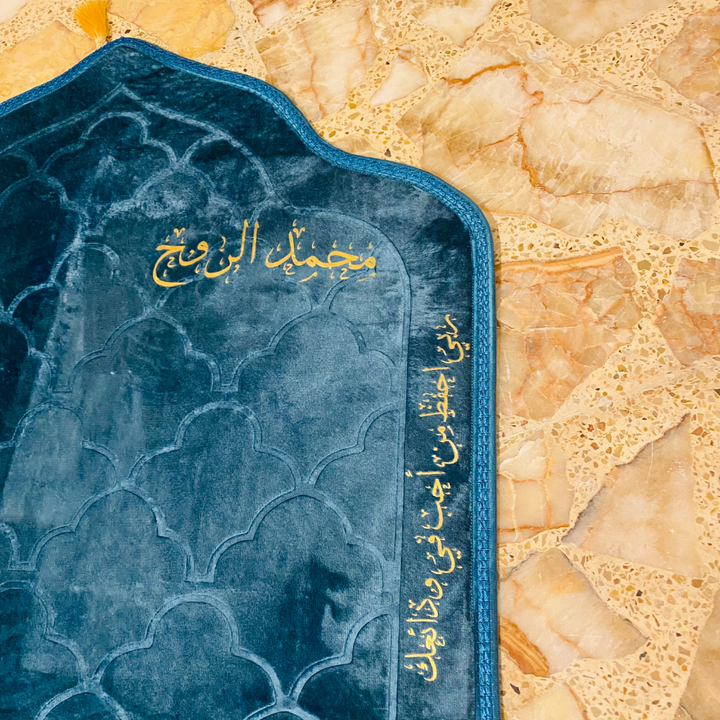 محمد الروح
ربي احفظ من أحب في ودائعك